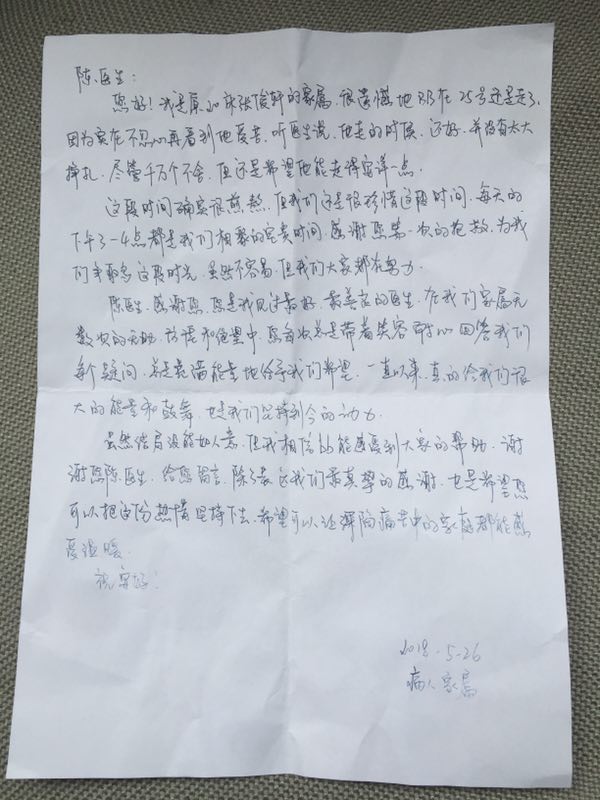 陈医生：
您好！我是原 床张俊轩的家属，很遗憾地BB在25号还是走了，
因为实在不忍心再看到他受苦，听医生说，他走的时候，还好，并没有太大
挣扎，尽管千万个不舍，但还是希望他能走得安详一点。
这段时间确实很煎熬，但我们还是很珍惜这段时间，每天的
下午3-4点都是我们相聚的宝贵时间，感谢您第一次的抢救，为我
们争取多这段时光，虽然不容易，但我们大家都在努力。
陈医生，感谢您，您是我见过最好，最善良的医生，在我们家属无
数次的无助，彷徨和绝望中，您每次总是带着笑容耐心回答我们
每个疑问，总是充满能量地给予我们希望，一直以来，真的给我们很
大的能量和鼓舞，也是我们坚持到今的动力。
虽然结局没能如人意，但我相信bb能感受到大家的帮助，谢
谢您陈医生，给您留言，除了表达我们最真挚的感谢，也是希望您
可以把这份热情坚持下去，希望可以让深陷病苦中的家庭都能感
受温暖。
祝安好！
2018.5.26
病人家属